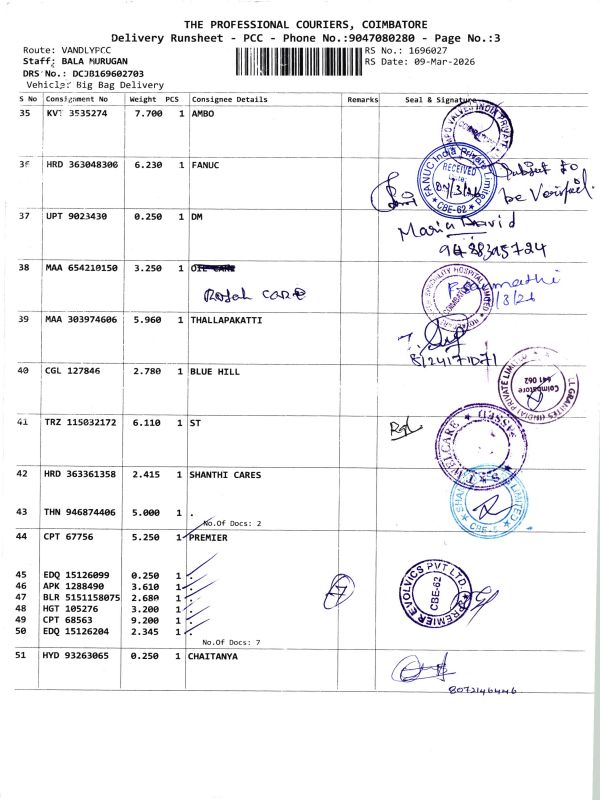 THE PROFESSIONAL COURIERS, COIMBATORE
Delivery Runsheet - PCC - Phone No.:9047080280 - Page No.:3
Route: VANDLYPCC RS No.: 1696027
Staff: BALA MURUGAN RS Date: 09-Mar-2026
DRS No.: DCOB169602703
Vehicle: Big Bag Delivery
S No Consignment No Weight PCS Consignee Details Remarks Seal & Signature
35 KVT 3535274 7.700 1 AMBO
36 HRD 363048306 6.230 1 FANUC
FANUC India Private Limited
RECEIVED
CBE-62
Subject to
be Verified.
37 UPT 9023430 0.250 1 DM
Maria David
9488395724
38 MAA 654210150 3.250 1 OIL CARE
Royal care
39 MAA 303974606 5.960 1 THALLAPAKATTI
40 CGL 127846 2.780 1 BLUE HILL
Coimbatore
641 062
41 TRZ 115032172 6.110 1 ST
WELCARE
PASSED
42 HRD 363361358 2.415 1 SHANTHI CARES
43 THN 946874406 5.000 1 .
No.Of Docs: 2
44 CPT 67756 5.250 1 PREMIER
45 EDQ 15126099 0.250 1 .
46 APK 1288490 3.610 1 .
47 BLR 5151158075 2.680 1 .
48 HGT 105276 3.200 1 .
49 CPT 68563 9.200 1 .
50 EDQ 15126204 2.345 1 .
No.Of Docs: 7
PREMIER EVOLVICS PVT LTD.
CBE-62
51 HYD 93263065 0.250 1 CHAITANYA